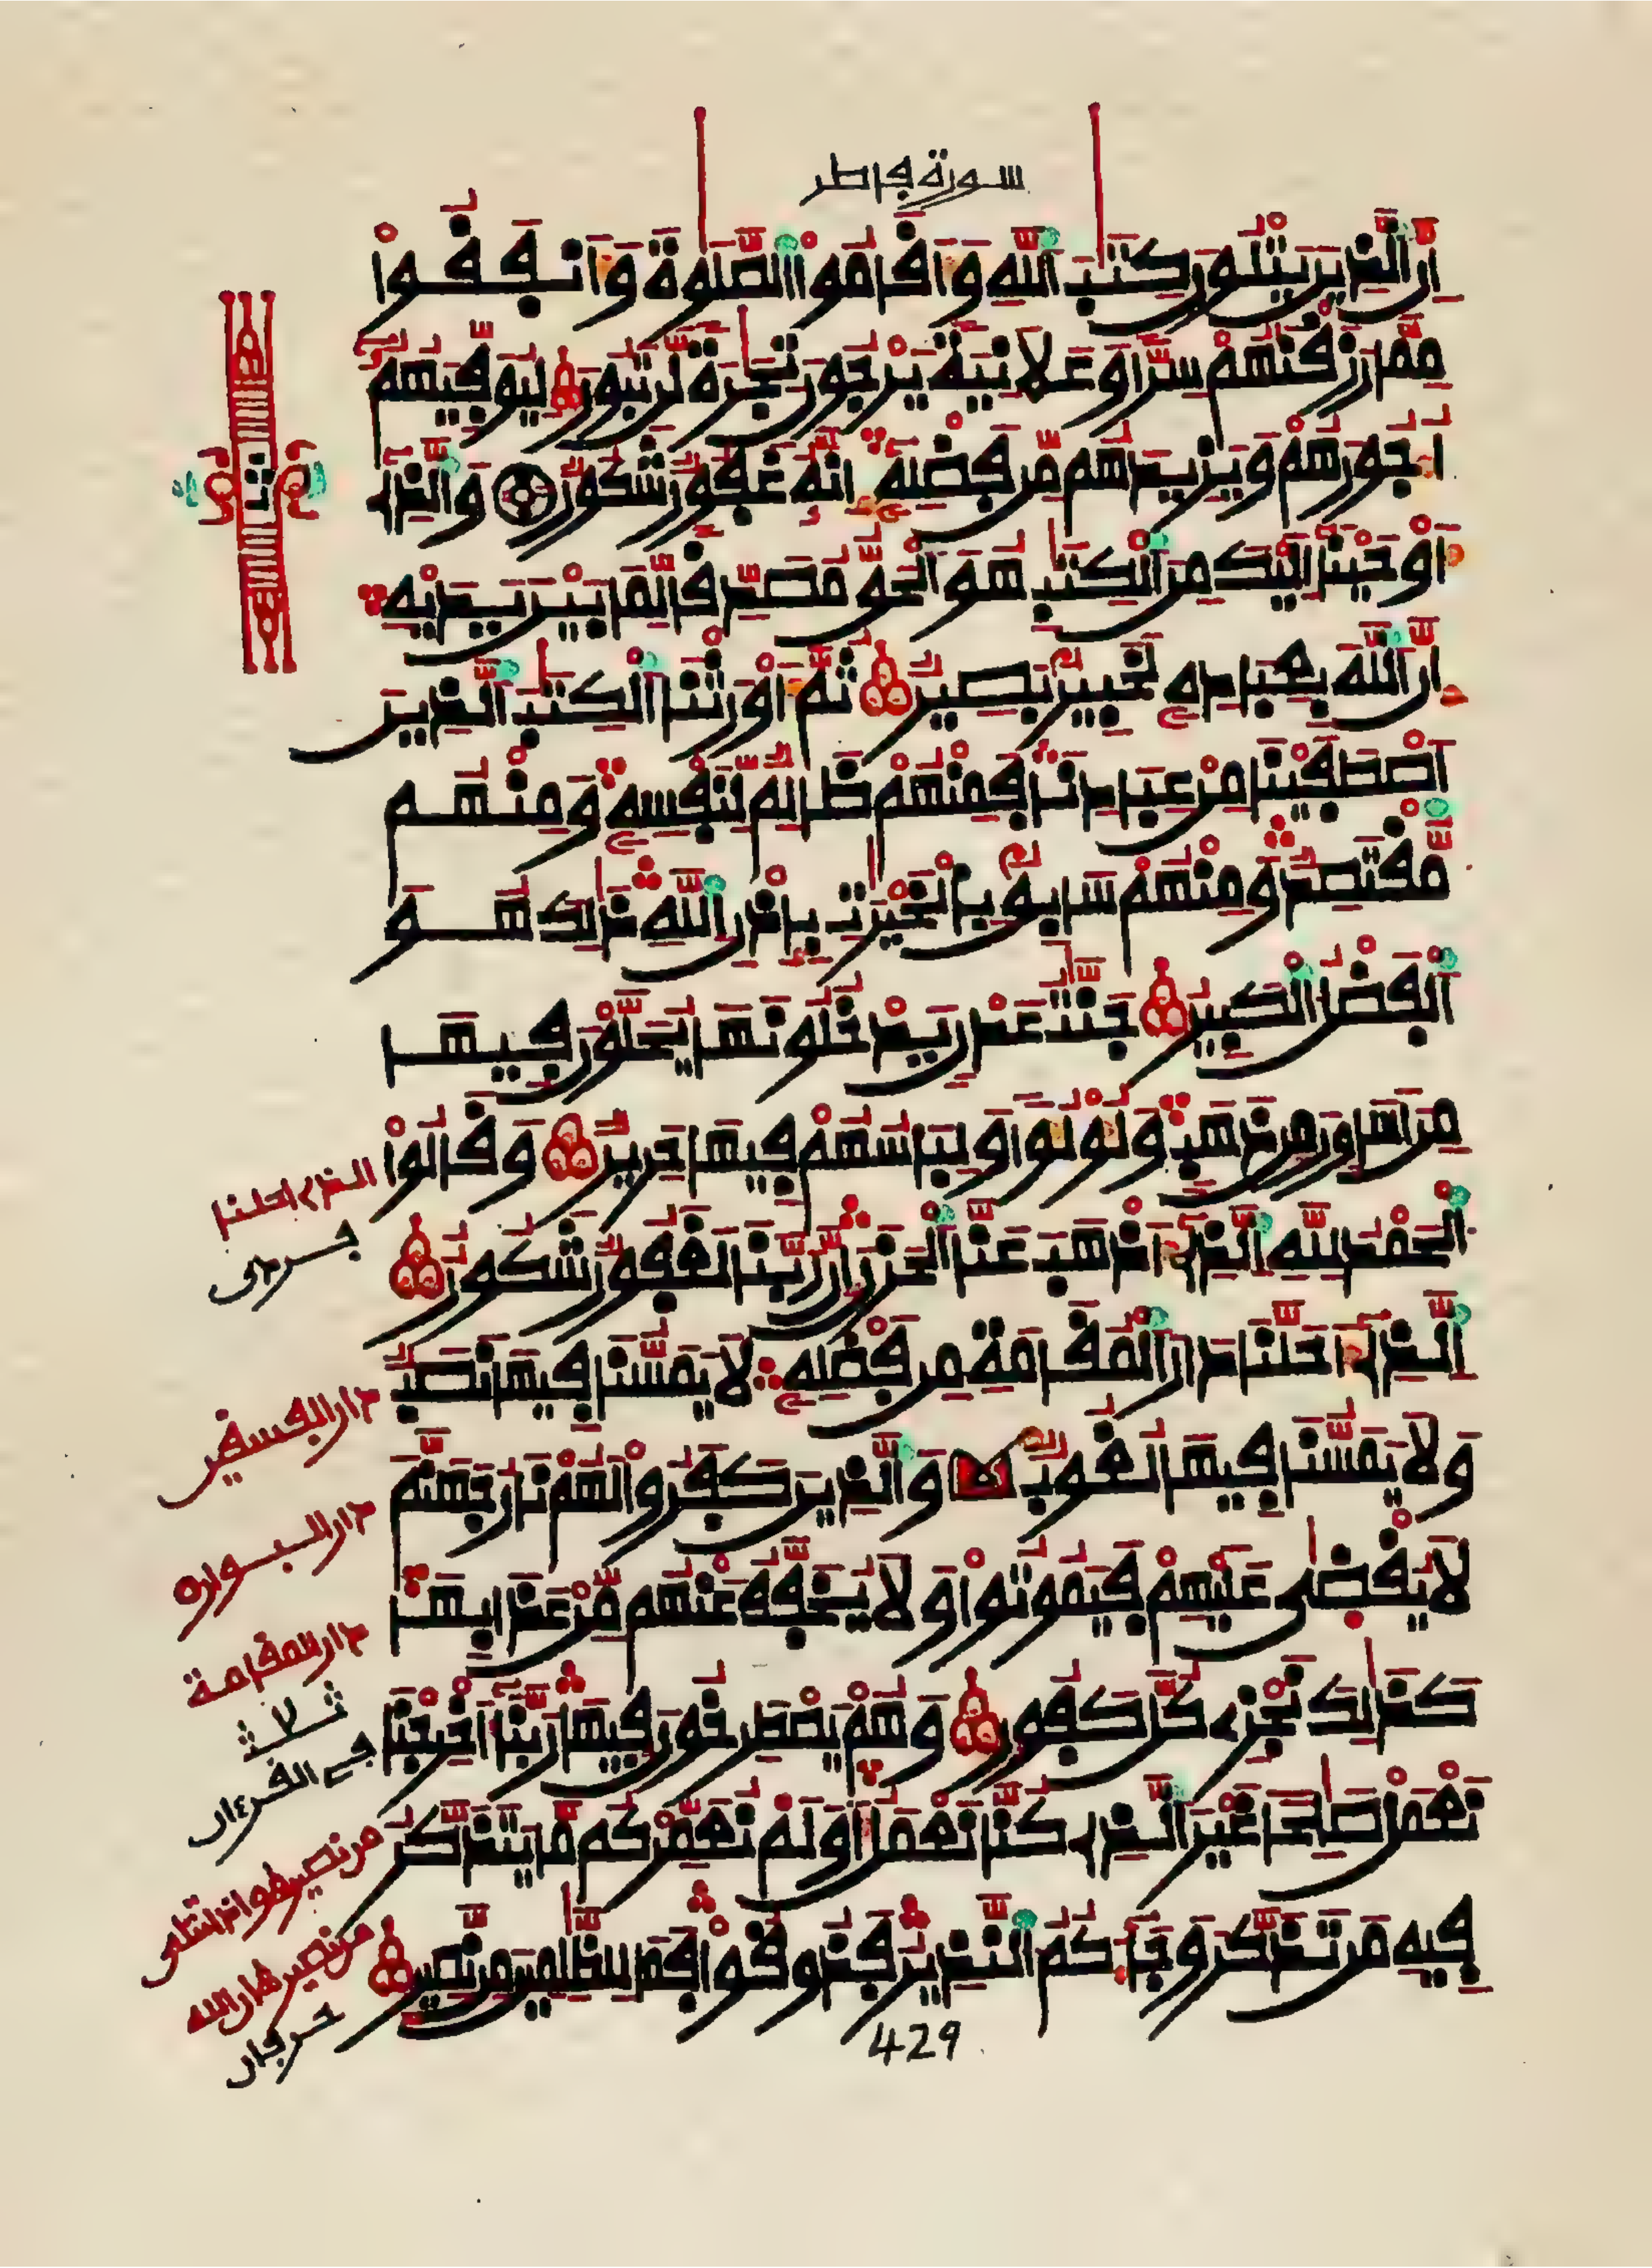 سورة فاطر
إن الذين يتلون كتب الله وأقاموا الصلوة وأنفقوا
مما رزقنهم سرا وعلانية يرجون تجرة لن تبور ليوفيهم
أجورهم ويزيدهم من فضله إنه غفور شكور والذي
أوحينا إليك من الكتب هو الحق مصدقا لما بين يديه
إن الله بعباده لخبير بصير ثم أورثنا الكتب الذين
اصطفينا من عبادنا فمنهم ظالم لنفسه ومنهم
مقتصد ومنهم سابق بالخيرت بإذن الله ذلك هو
الفضل الكبير جنت عدن يدخلونها يحلون فيها
من أساور من ذهب ولؤلؤا ولباسهم فيها حرير وقالوا
الحمد لله الذي أذهب عنا الحزن إن ربنا لغفور شكور
الذي أحلنا دار المقامة من فضله لا يمسنا فيها نصب
ولا يمسنا فيها لغوب والذين كفروا لهم نار جهنم
لا يقضى عليهم فيموتوا ولا يخفف عنهم من عذابها
كذلك نجزي كل كفور وهم يصطرخون فيها ربنا أخرجنا
نعمل صلحا غير الذي كنا نعمل أولم نعمركم ما يتذكر
فيه من تذكر وجاءكم النذير فذوقوا فما للظلمين من نصير
429
ثمن
الذي احلنا
دار الفسقين
دار البوار
دار المقامة
ثلاث
في القرءان
من نصير
من نصير